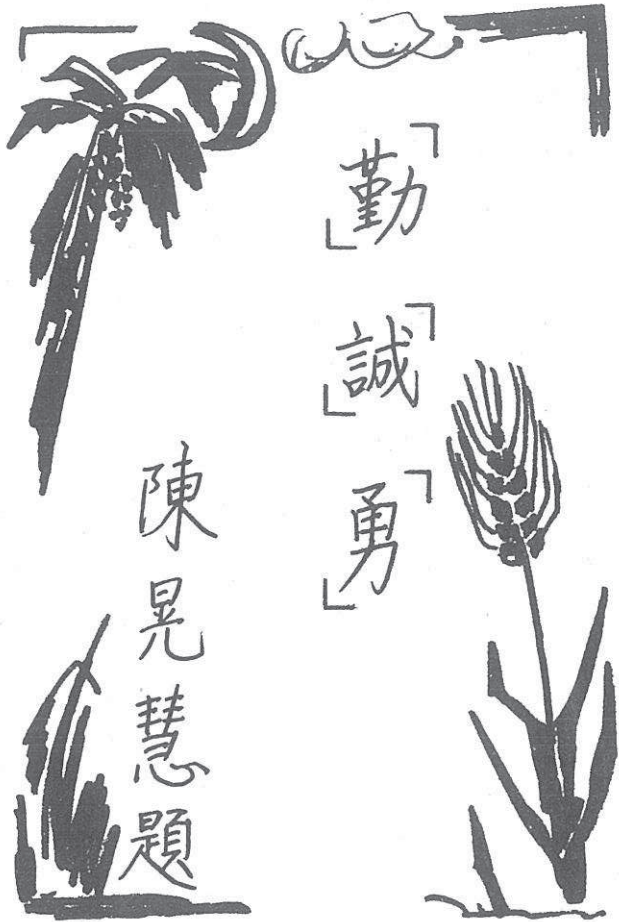 「勤」「誠」「勇」
陳晃慧題